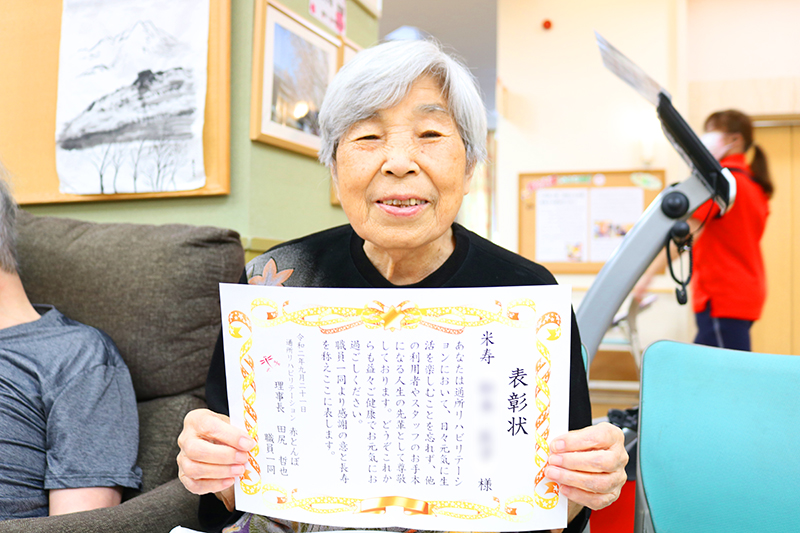 表彰状
米寿
様
あなたは通所リハビリテーシ
ョンにおいて、日々元気に生
活を楽しむことを忘れず、他
の利用者やスタッフのお手本
になる人生の先輩として尊敬
しております。どうぞこれか
らも益々ご健康でお元気にお
過ごしください。
職員一同より感謝の意と長寿
を称えここに表します。
令和二年九月二十一日
通所リハビリテーション 赤とんぼ
理事長 田尻 哲也
職員一同